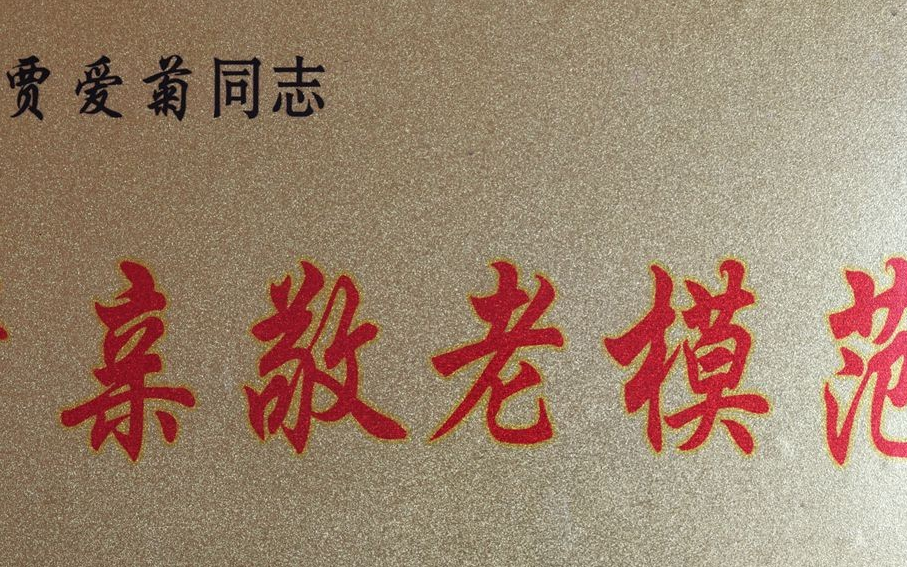 贾爱菊同志
亲敬老模范